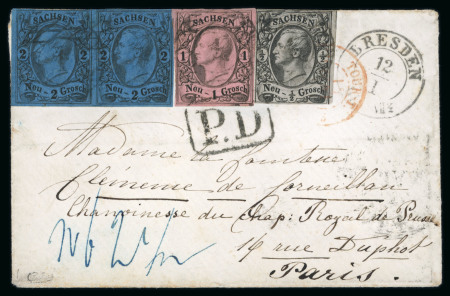 SACHSEN SACHSEN SACHSEN SACHSEN
2 2 2 2 1 1 ½ ½
Neu - 2 Grosch. Neu - 2 Grosch. Neu - 1 Grosch. Neu - ½ Grosch.
DRESDEN
12
I
P.D
Madame la Comtesse
Clémence de Corneillan
Chanoinesse du Chap: Royal de Prusse
14 rue Duphot
Paris.